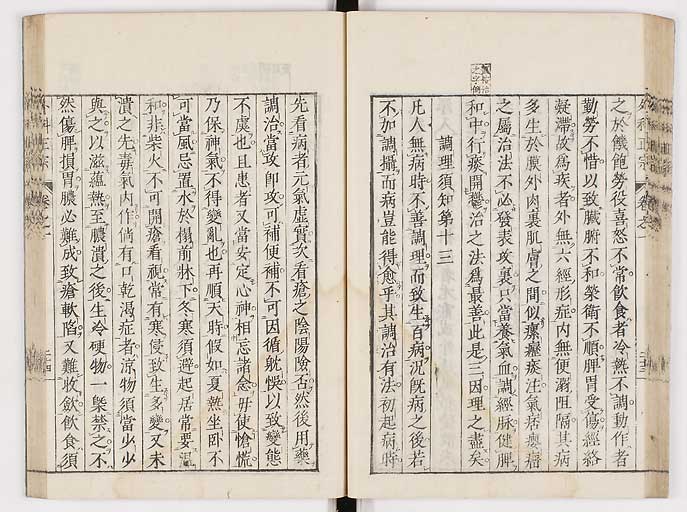 之於饑飽勞役喜怒不常飲食者冷熱不調動作者
勤勞不惜以致臟腑不和榮衛不順脾胃受傷經絡
凝滯故為疾者外無六經形症內無便溺阻隔其病
多生於膜外肉裏肌膚之間似瘰癧痰注氣居癭瘤
之屬治法不必發表攻裏只當養氣血調經脉健脾
和中行痰開鬱治之法為最善此是三因理之盡矣
調理須知第十三
凡人無病時不善調理而致生百病況既病之後若
不加調攝而病豈能得愈乎其調治有法初起病時
先看病者元氣虛實次看瘡之陰陽險否然後用藥
調治當攻即攻可補便補不可因循躭悞以致變態
不虞也且患者又當安定心神相忘諸念毋使愴慌
乃保神氣不得變亂也再順天時假如夏熱坐臥不
可當風忌置水於榻前牀下冬寒須避起居常要溫
和非柴火不可開瘡看視常有寒侵致生多變又未
潰之先毒氣內作倘有口乾渴症者涼物須當少少
與之以滋蘊熱至膿潰之後生冷硬物一槩禁之不
然傷脾損胃膿必難成致瘡軟陷又難收斂飲食須